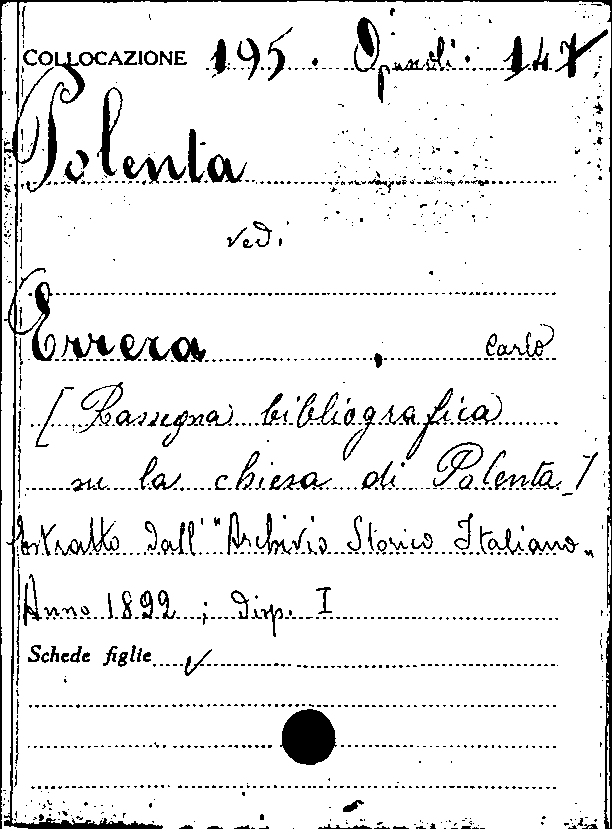 COLLOCAZIONE 195. Opuscoli. 147
Polenta
vedi
Errera, Carlo
[Rassegna bibliografica
su la chiesa di Polenta]
Estratto dall' "Archivio Storico Italiano„
Anno 1892; disp. I
Schede figlie ✓